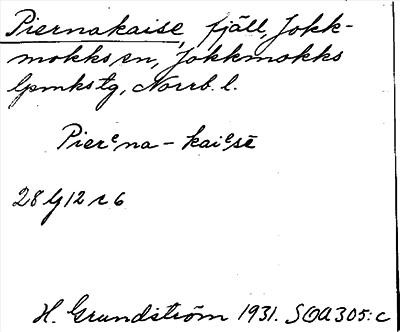 Piernakaise, fjäll, Jokk-
mokks sn, Jokkmokks
lpmkstg, Norrb. l.
Pierᵉna – kaiᵉsē
28 G 12 r 6
H. Grundström 1931. SOA 305:c